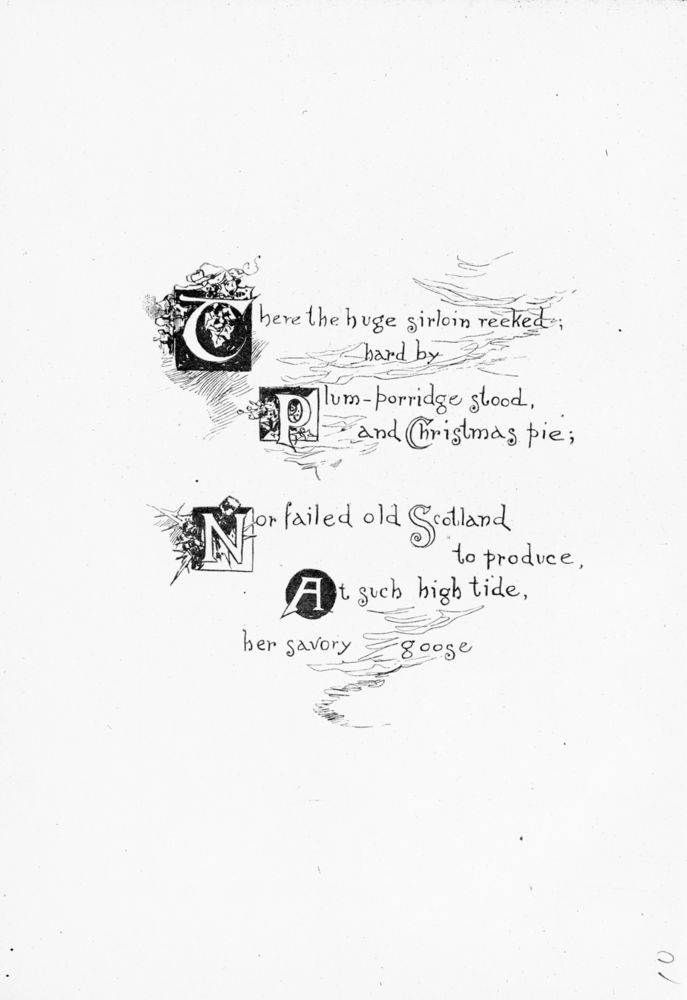 There the huge sirloin reeked;
hard by
Plum-porridge stood,
and Christmas pie;
Nor failed old Scotland
to produce,
At such high tide,
her savory goose
10